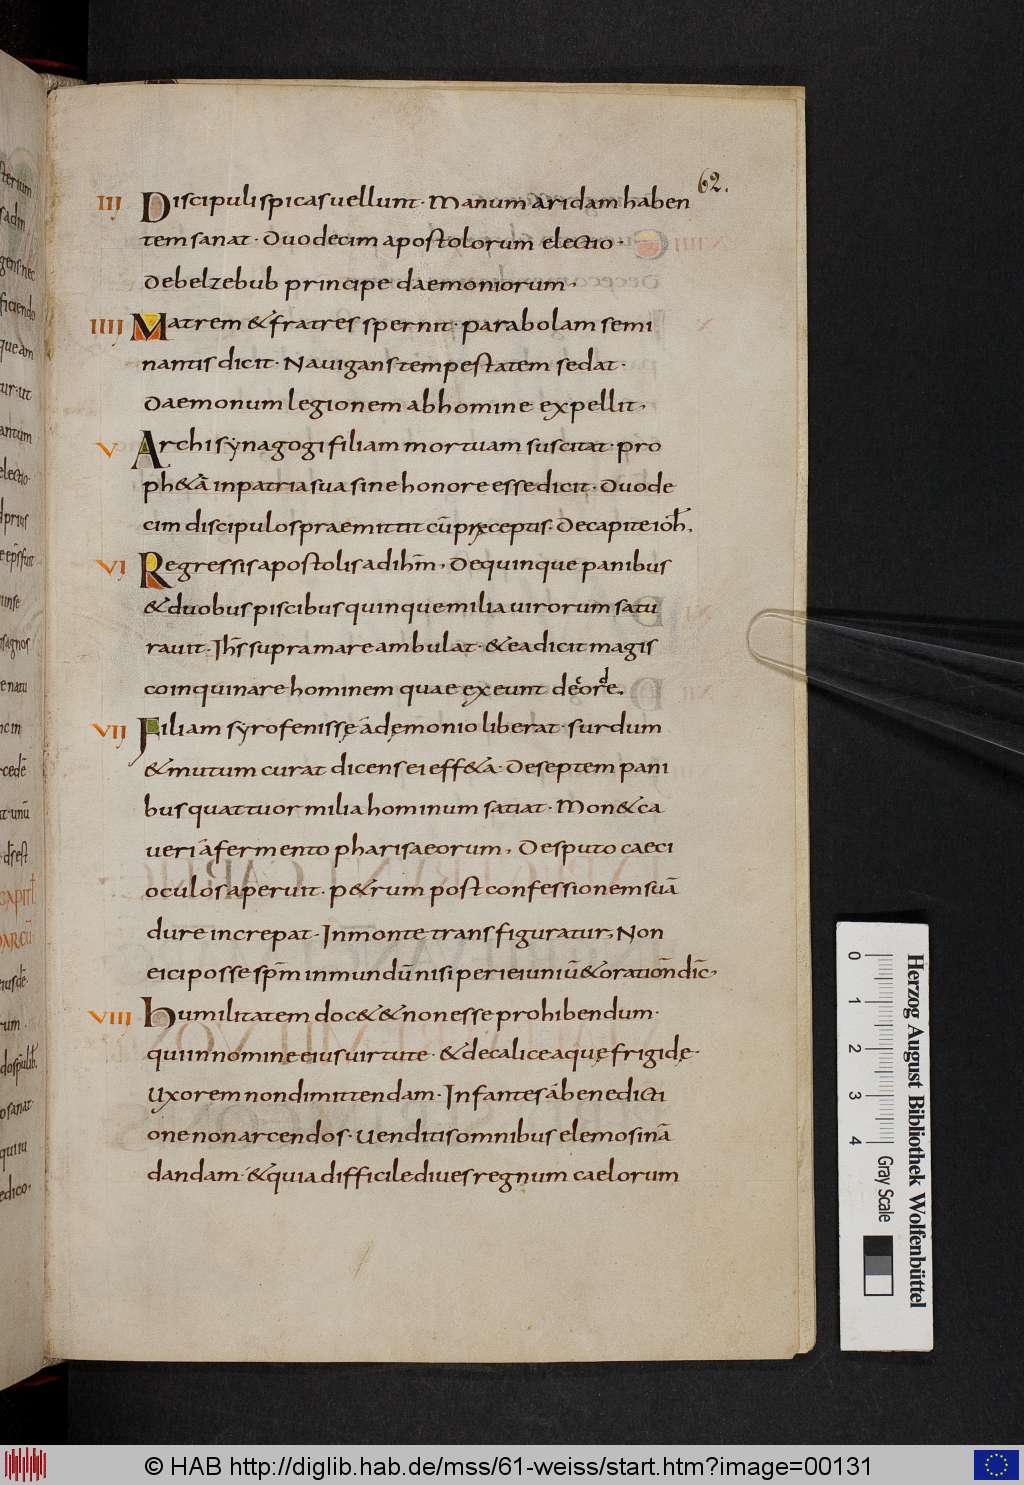 62.
III Discipuli spicas vellunt · Manum aridam haben
tem sanat · Duodecim apostolorum electio ·
De belzebub principe daemoniorum ·
IIII Matrem & fratres spernit · parabolam semi
nantis dicit · Navigans tempestatem sedat ·
Daemonum legionem ab homine expellit ·
V Archisynagogi filiam mortuam suscitat · pro
ph&ā in patria sua sine honore esse dicit · Duode
cim discipulos praemittit cū pręceptis · De capite ioh̄ ·
VI Regressis apostolis ad ihm̄ · De quinque panibus
& duobus piscibus quinque milia virorum satu
ravit · Ihs̄ supra mare ambulat · & ea dicit magis
coinquinare hominem quae exeunt de corde ·
VII Filiam syrofenissę a demonio liberat · surdum
& mutum curat dicens ei eff&a · De septem pani
bus quattuor milia hominum satiat · Mon& ca
veri a fermento pharisaeorum · De sputo caeci
oculos aperuit · p&rum post confessionem suā
dure increpat · In monte transfiguratur, Non
eici posse spm̄ inmundū nisi per ieiuniū & orationē dic̄ ·
VIII Humilitatem doc& & non esse prohibendum ·
qui in nomine eius virtute · & de calice aquę frigidę ·
Uxorem non dimittendam · Infantes a benedicti
one non arcendos · Venditis omnibus elemosinā
dandam · & quia difficile dives regnum caelorum
Herzog August Bibliothek Wolfenbüttel
0 1 2 3 4 Gray Scale
© HAB http://diglib.hab.de/mss/61-weiss/start.htm?image=00131